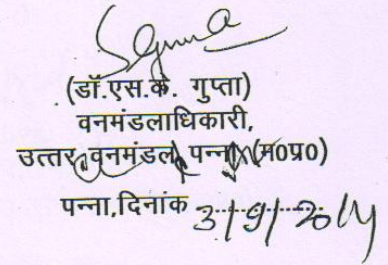 (डॉ.एस.के. गुप्ता)
वनमंडलाधिकारी,
उत्तर वनमंडल पन्ना (म0प्र0)
पन्ना,दिनांक 3/9/2014